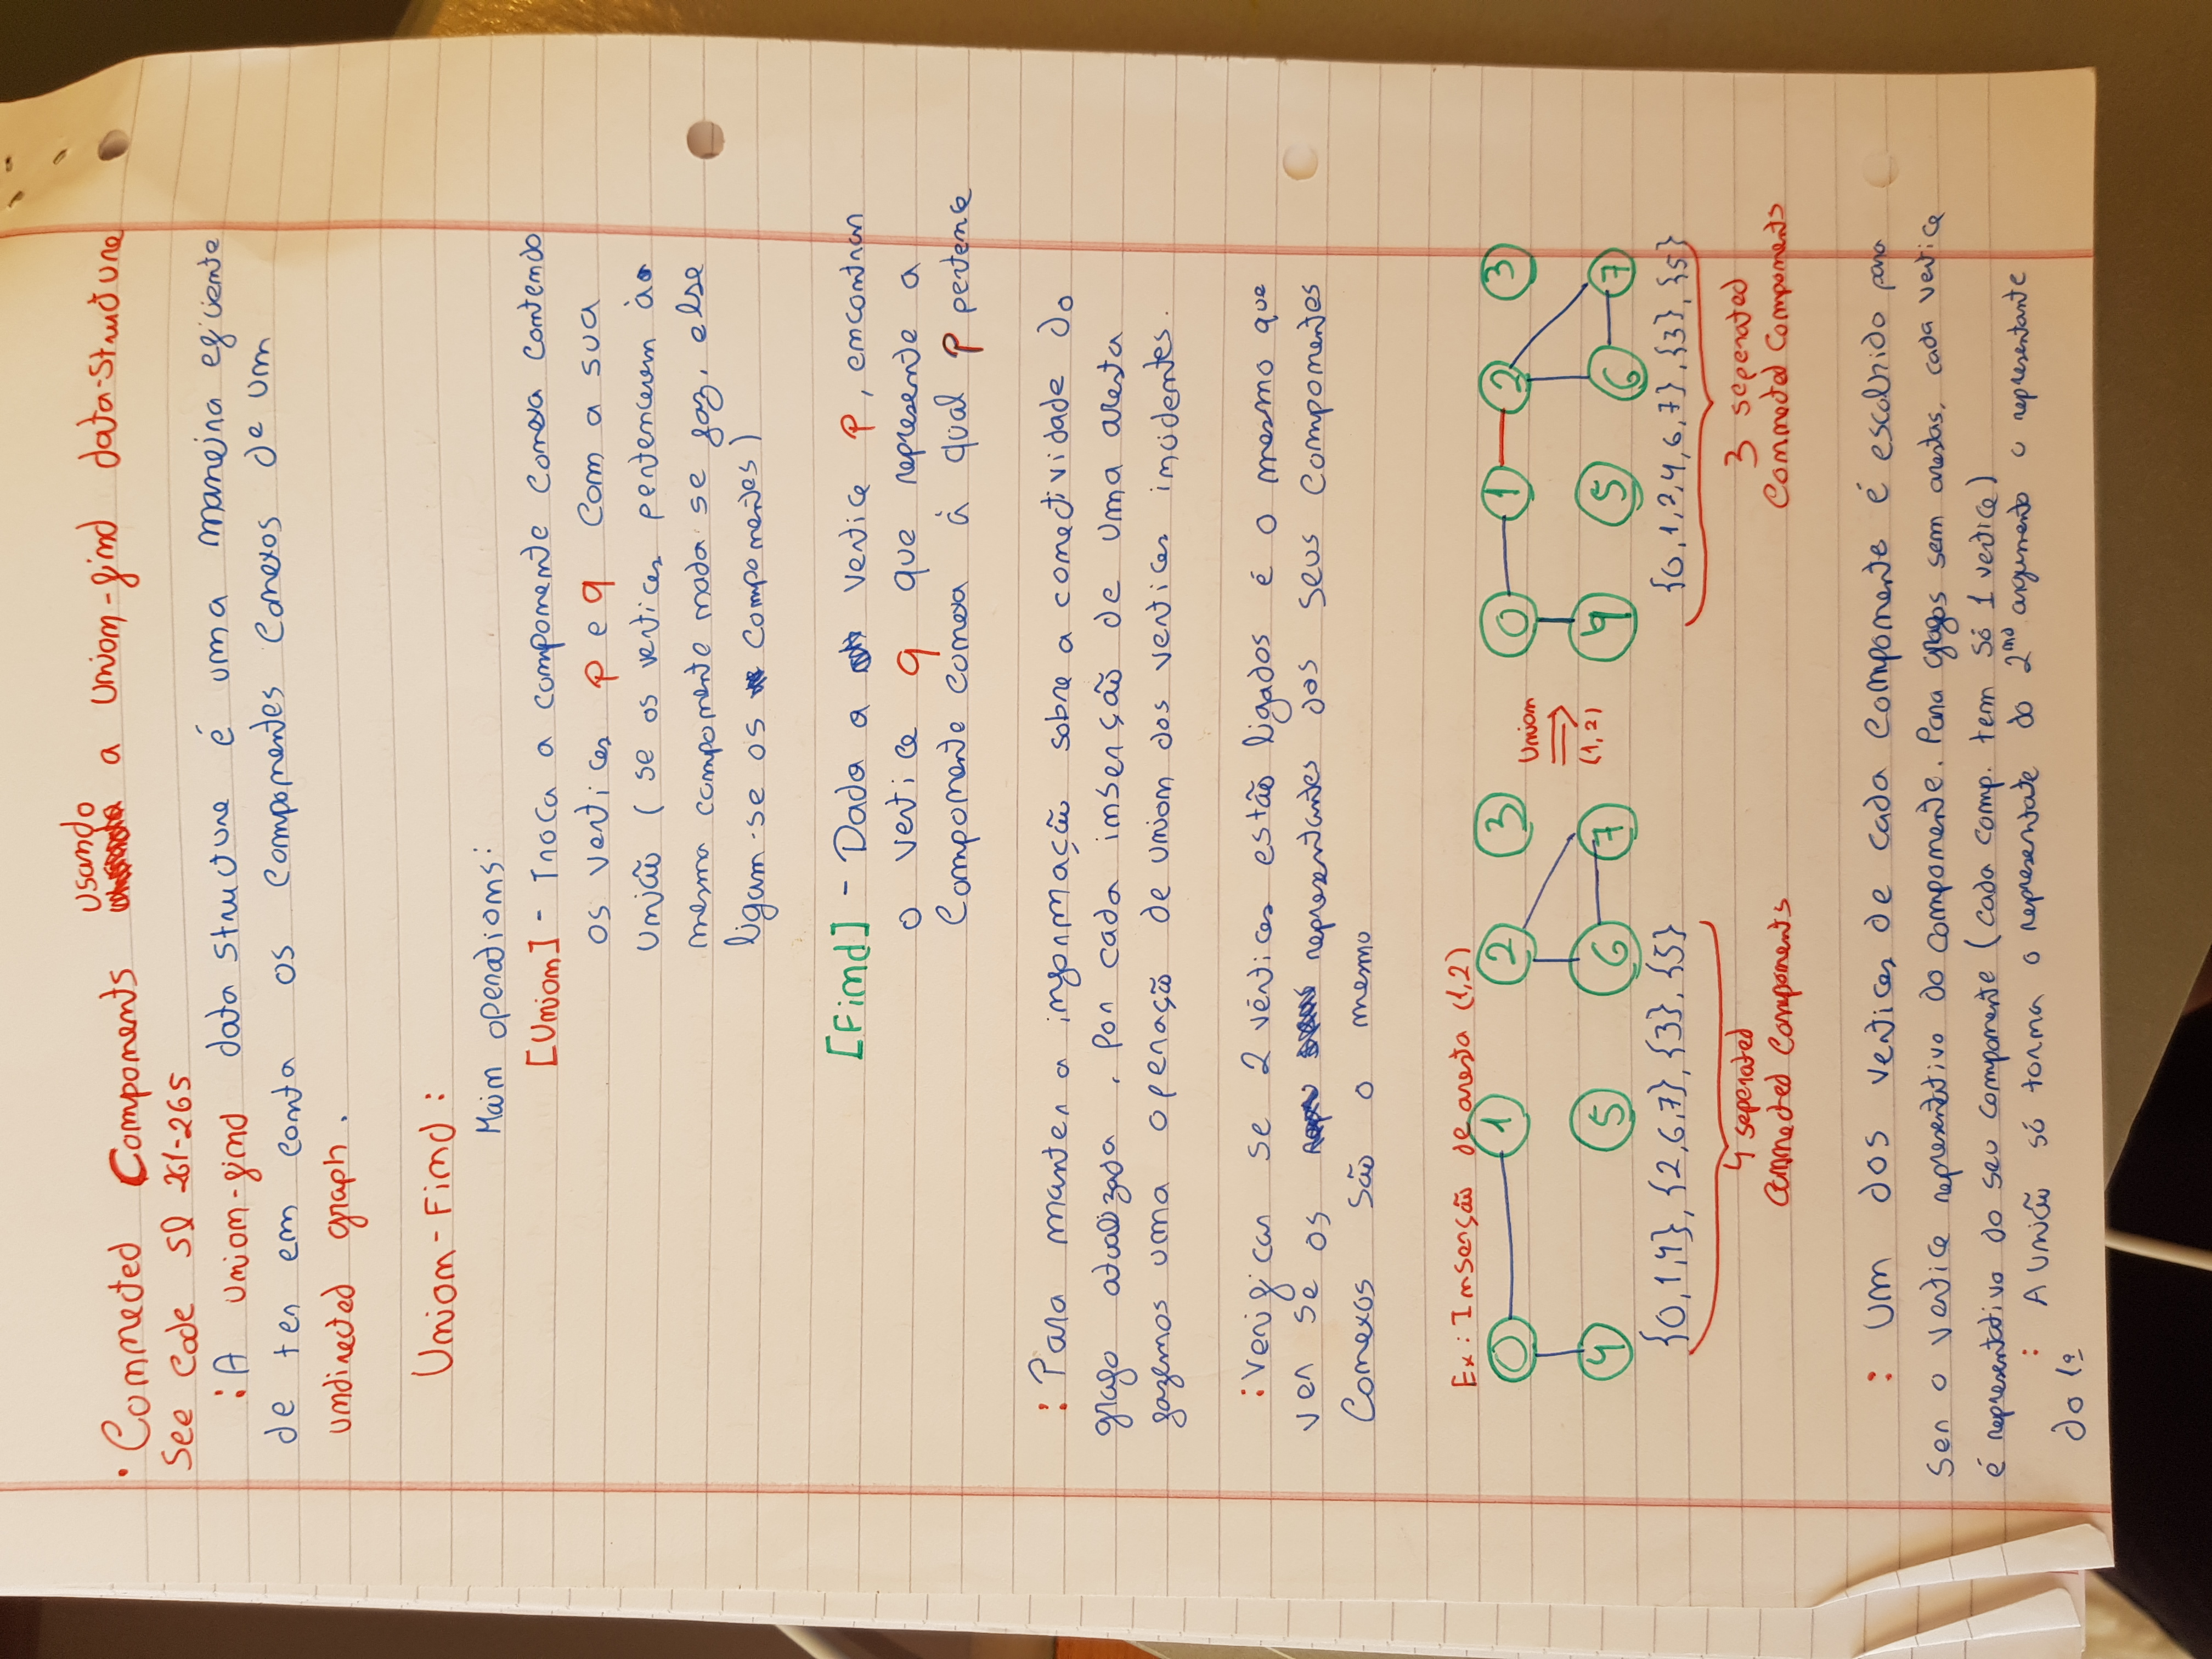 • Connected Components usando a union-find data-structure
See Code Sl 261-265
: A union-find data structure é uma maneira eficiente
de ter em conta os componentes conexos de um
undirected graph.
Union-Find:
Main operations:
[Union] - Troca a componente conexa contendo
os vertices p e q com a sua
união (se os vertices pertencerem à
mesma componente nada se faz, else
ligam-se os componentes)
[Find] - Dada a vertice p, encontrar
o vertice q que represente a
componente conexa à qual p pertence
: Para manter a informação sobre a conectividade do
grafo atualizada, por cada inserção de uma aresta
fazemos uma operação de union dos vertices incidentes.
: Verificar se 2 vértices estão ligados é o mesmo que
ver se os representantes dos seus componentes
conexos são o mesmo
Ex: Inserção de aresta (1,2)
0 1 2 3 Union 0 1 2 3
4 5 6 7 (1,2) 4 5 6 7
{0,1,4}, {2,6,7}, {3}, {5} {0,1,2,4,6,7}, {3}, {5}
4 seperated 3 seperated
Connected Components Connected Components
: Um dos vertices de cada componente é escolhido para
ser o vertice representativo do componente. Para grafos sem arestas, cada vertice
é representativo do seu componente (cada comp. tem só 1 vertice)
: A união só torna o representate do 2nd argumento o representante
do 1º